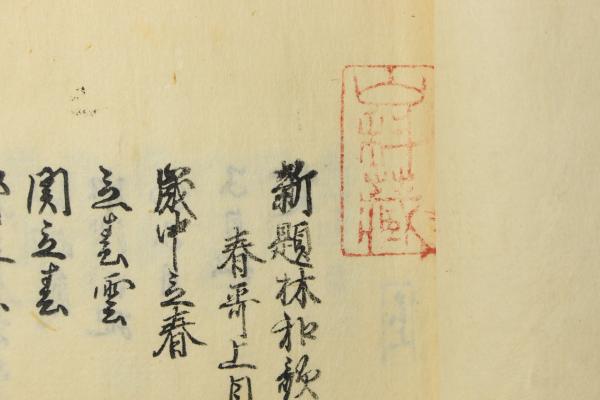 新題林和歌
春哥上目
歳中立春
立春雲
関立春